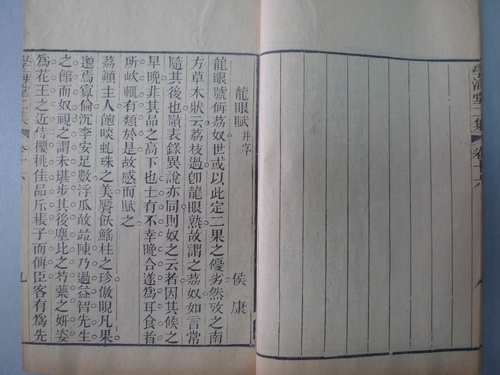 學海堂集
卷十六
龍眼賦 幷序
侯康
龍眼號荔奴世或以此定二果之優劣然攷之南
方草木狀云荔枝過卽龍眼熟故謂之荔奴如言常
隨其後也嶺表錄異說亦同則奴之云者因其候之
早晚非其品之高下也士有不幸晚合遂爲耳食者
所有類於是故感而賦之
荔主人飽啖虬珠之美饜飫柱之珍傲睨凡果
邈焉寡倫沉李安足數浮瓜故陳乃過益智先生
之館而奴視之謂未堪步其後塵比之芍藥之姸姿
爲花王之近侍櫻桃佳品斥子而臣客有爲先
學海堂集
卷十六
九